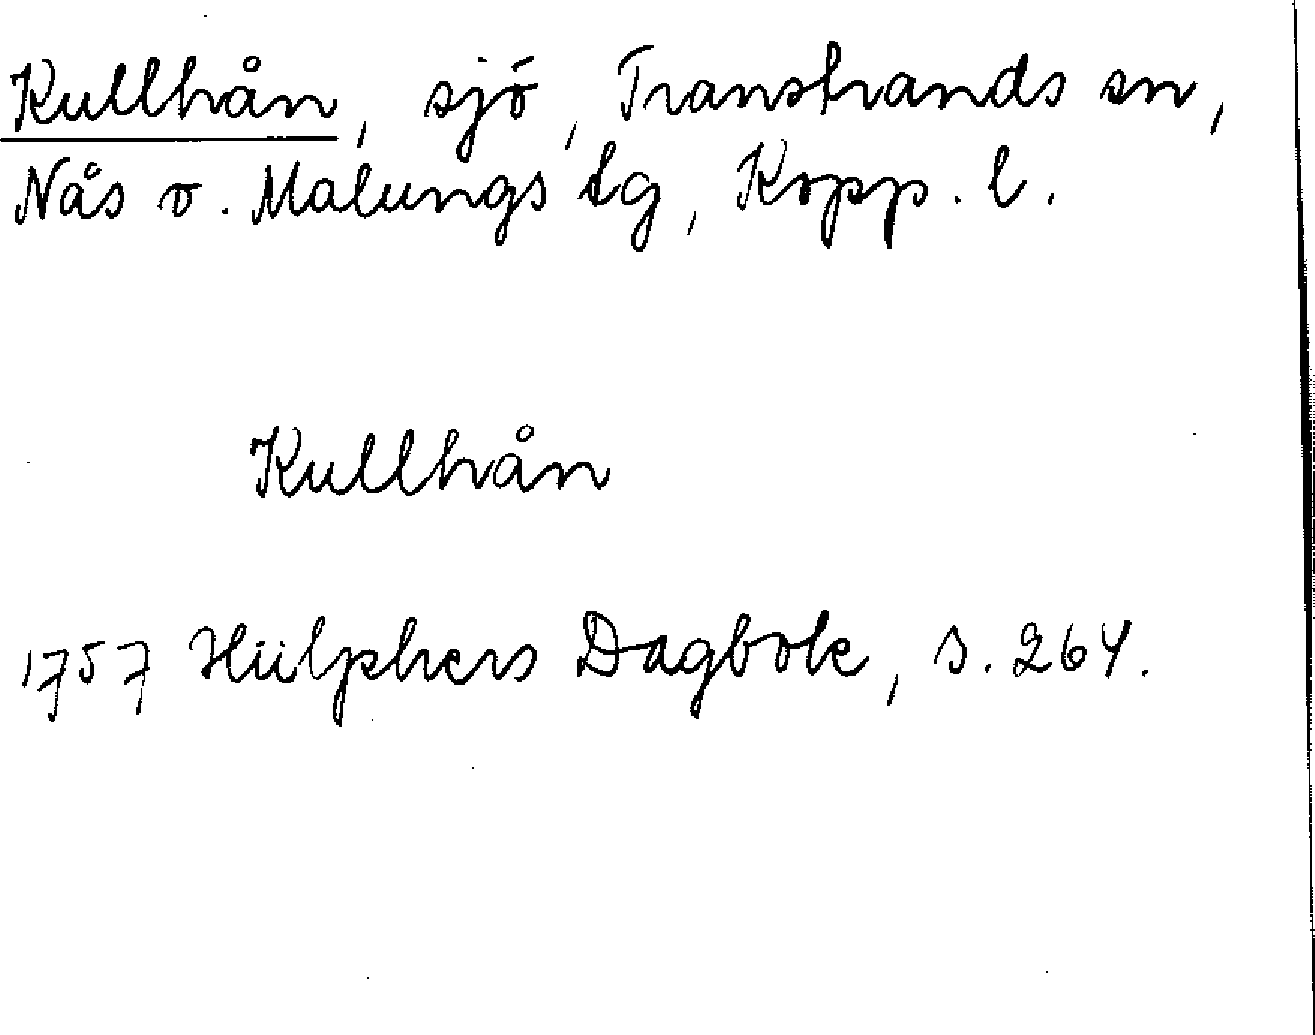 Kullhån, sjö, Transtrands sn,
Nås o. Malungs tg, Kopp. l.
Kullhån
1757 Hülphers Dagbok, s. 264.